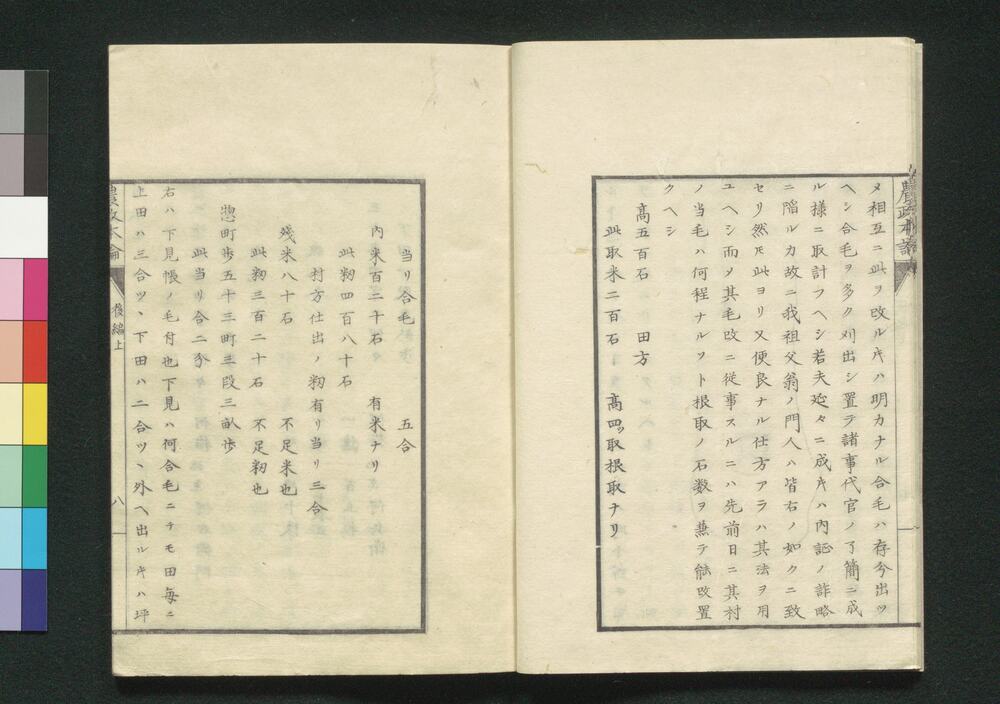 メ相互ニ此ヲ改ルキハ明カナル合毛ハ存分出ツ
ヘシ合毛ヲ多ク刈出シ置テ諸事代官ノ了簡ニ成
ル様ニ取計フヘシ若夫延々ニ成キハ内証ノ詐略
ニ陥ルカ故ニ我祖父翁ノ門人ハ皆右ノ如クニ致
セリ然𪜈此ヨリ又便良ナル仕方アラハ其法ヲ用
ユヘシ而メ其毛改ニ従事スルニハ先前日ニ其村
ノ当毛ハ何程ナルヲト根取ノ石数ヲ兼テ能改置
クヘシ
高五百石 田方
此取米二百石 高四ッ取根取ナリ
当リ合毛 五合
内米百二十石 有米ナリ
此籾四百八十石
村方仕出ノ籾有リ当リ三合
残米八十石 不足米也
此籾三百二十石 不足籾也
惣町歩五十三町三段三畝歩
此当リ合二分
右ハ下見帳ノ毛付也下見ハ何合毛ニテモ田毎ニ
上田ハ三合ツヽ下田ハ二合ツヽ外ヘ出ルキハ坪
農政本論 後編上 八